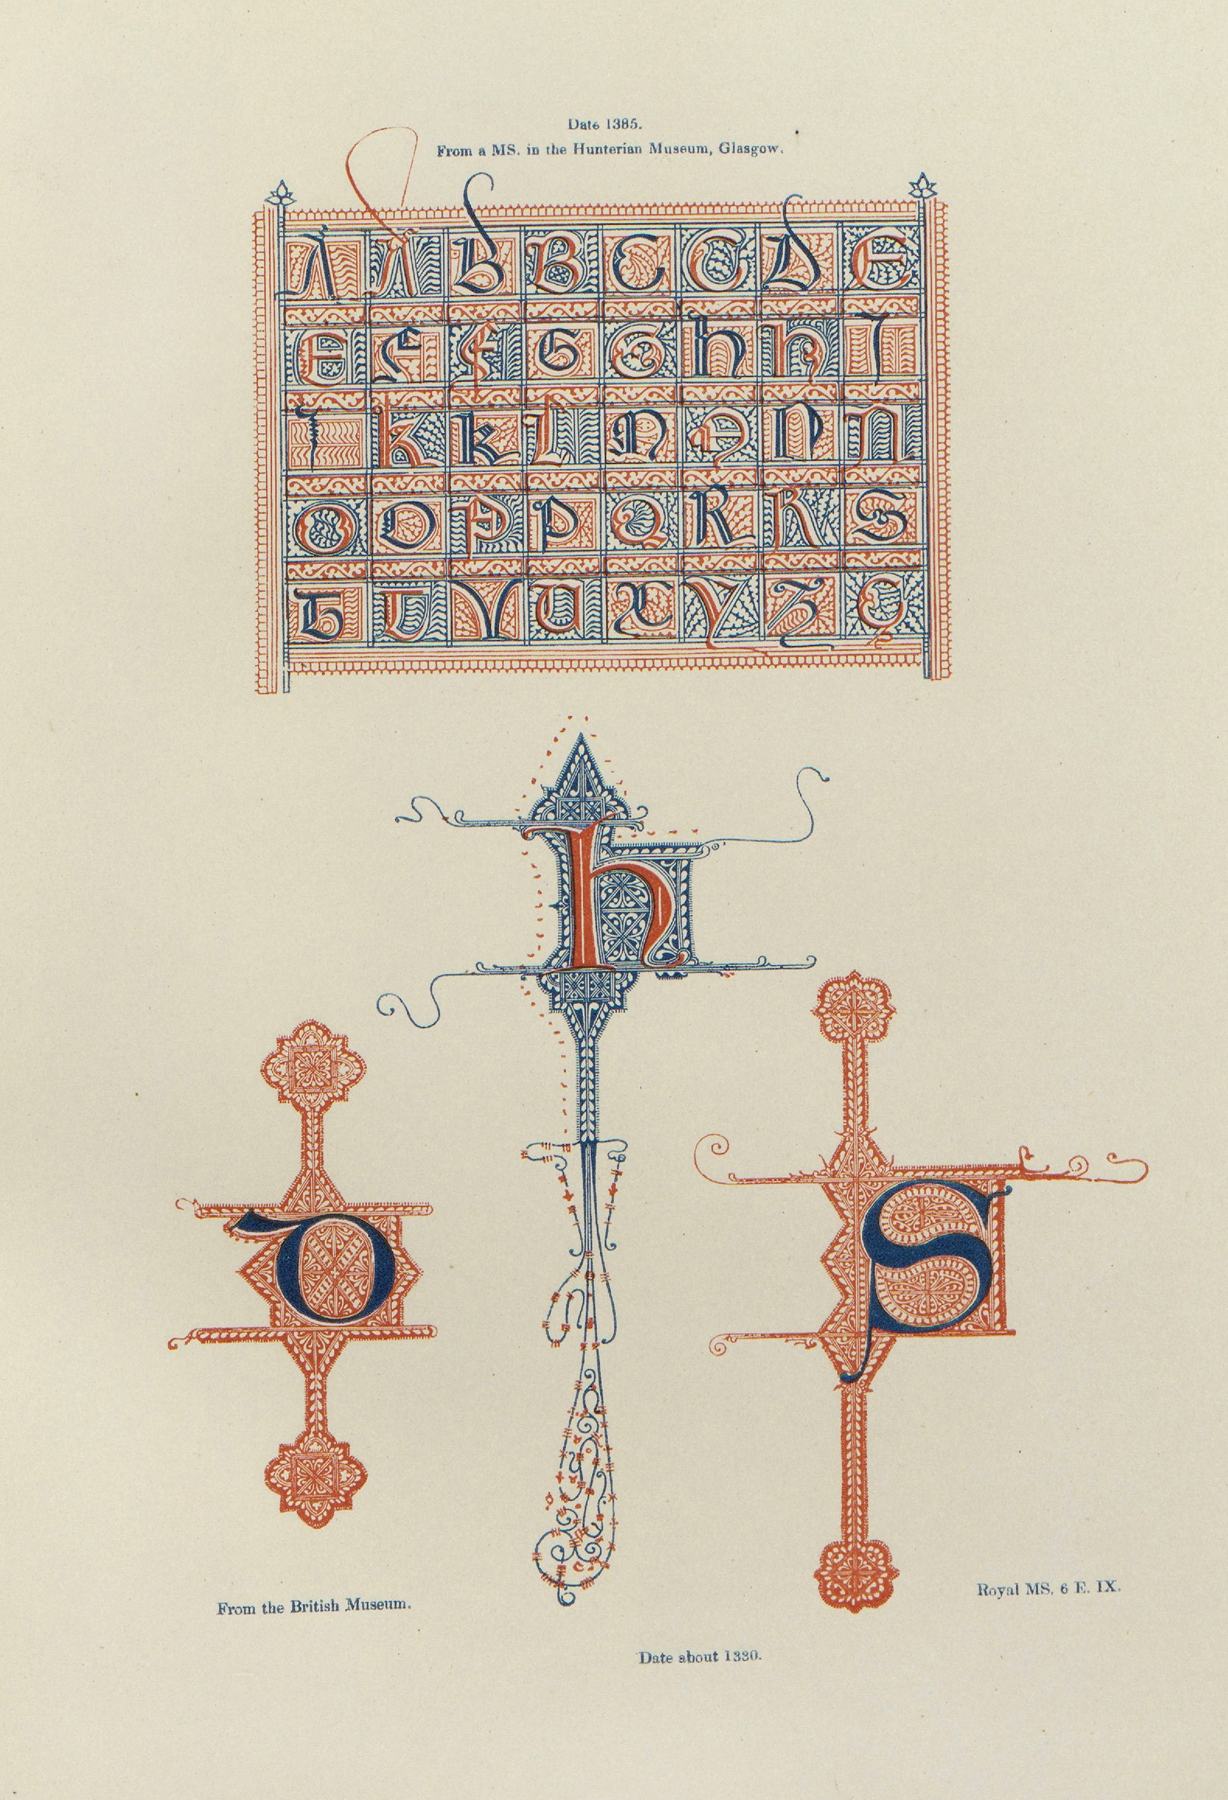 Date 1385.
From a MS. in the Hunterian Museum, Glasgow.
A A B B C C D E
E F F G G h h I
I k k L M M N N
O O P P Q R R S
T T V U X Y Z
h
D
S
From the British Museum.
Royal MS. 6 E. IX.
Date about 1330.